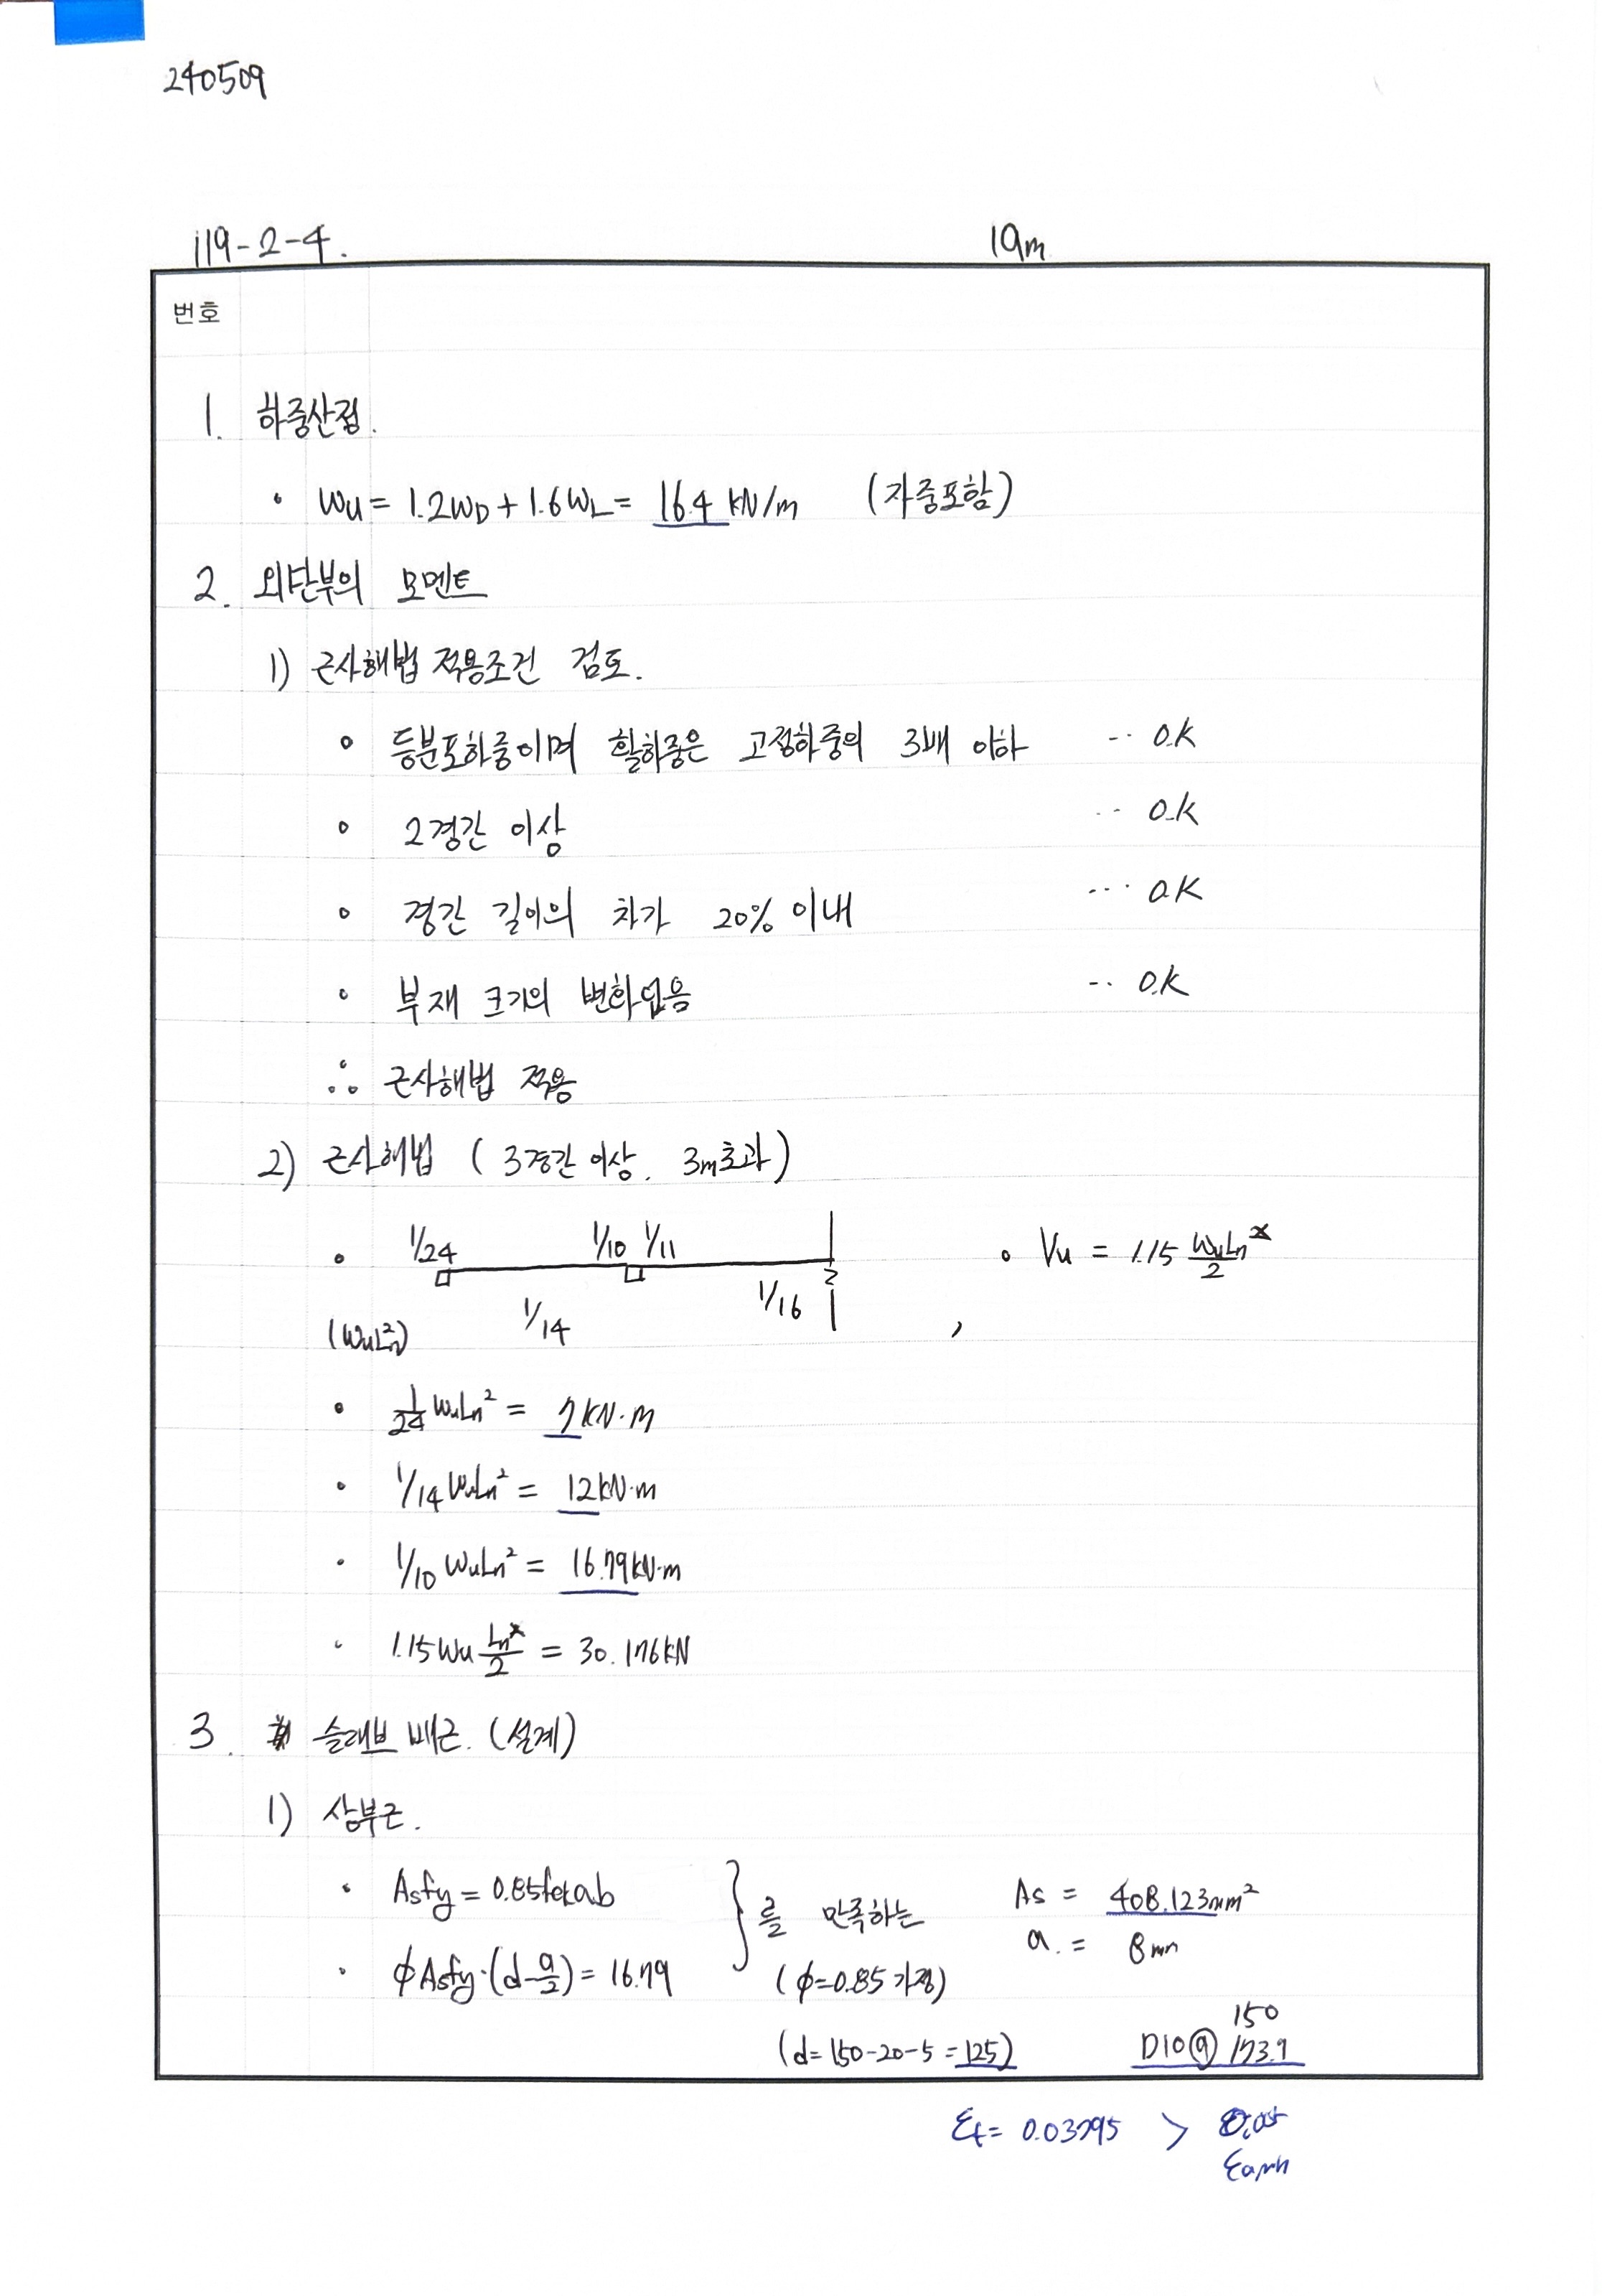 240509
119-2-4.
19m
번호
1. 하중산정.
• Wu = 1.2WD + 1.6WL = 16.4 kN/m (자중포함)
2. 외단부의 모멘트
1) 근사해법 적용조건 검토.
• 등분포하중이며 활하중은 고정하중의 3배 이하 ·· O.K
• 2경간 이상 ·· O.K
• 경간 길이의 차가 20% 이내 ··· O.K
• 부재 크기의 변화없음 ·· O.K
∴ 근사해법 적용
2) 근사해법 (3경간 이상. 3m초과)
• 1/24 1/10 1/11
1/14 1/16
(WuLn²) ,
• Vu = 1.15 WuLn/2
• 1/24 WuLn² = 7kN·m
• 1/14 WuLn² = 12kN·m
• 1/10 WuLn² = 16.79kN·m
• 1.15Wu Ln/2 = 30.176kN
3. 슬래브 배근. (설계)
1) 상부근.
• Asfy = 0.85fckab
• φAsfy·(d-a/2) = 16.79
} 를 만족하는
(φ=0.85 가정)
(d=150-20-5=125)
As = 408.123mm²
a. = 8mm
150
D10@ 173.9
εt = 0.03795 >